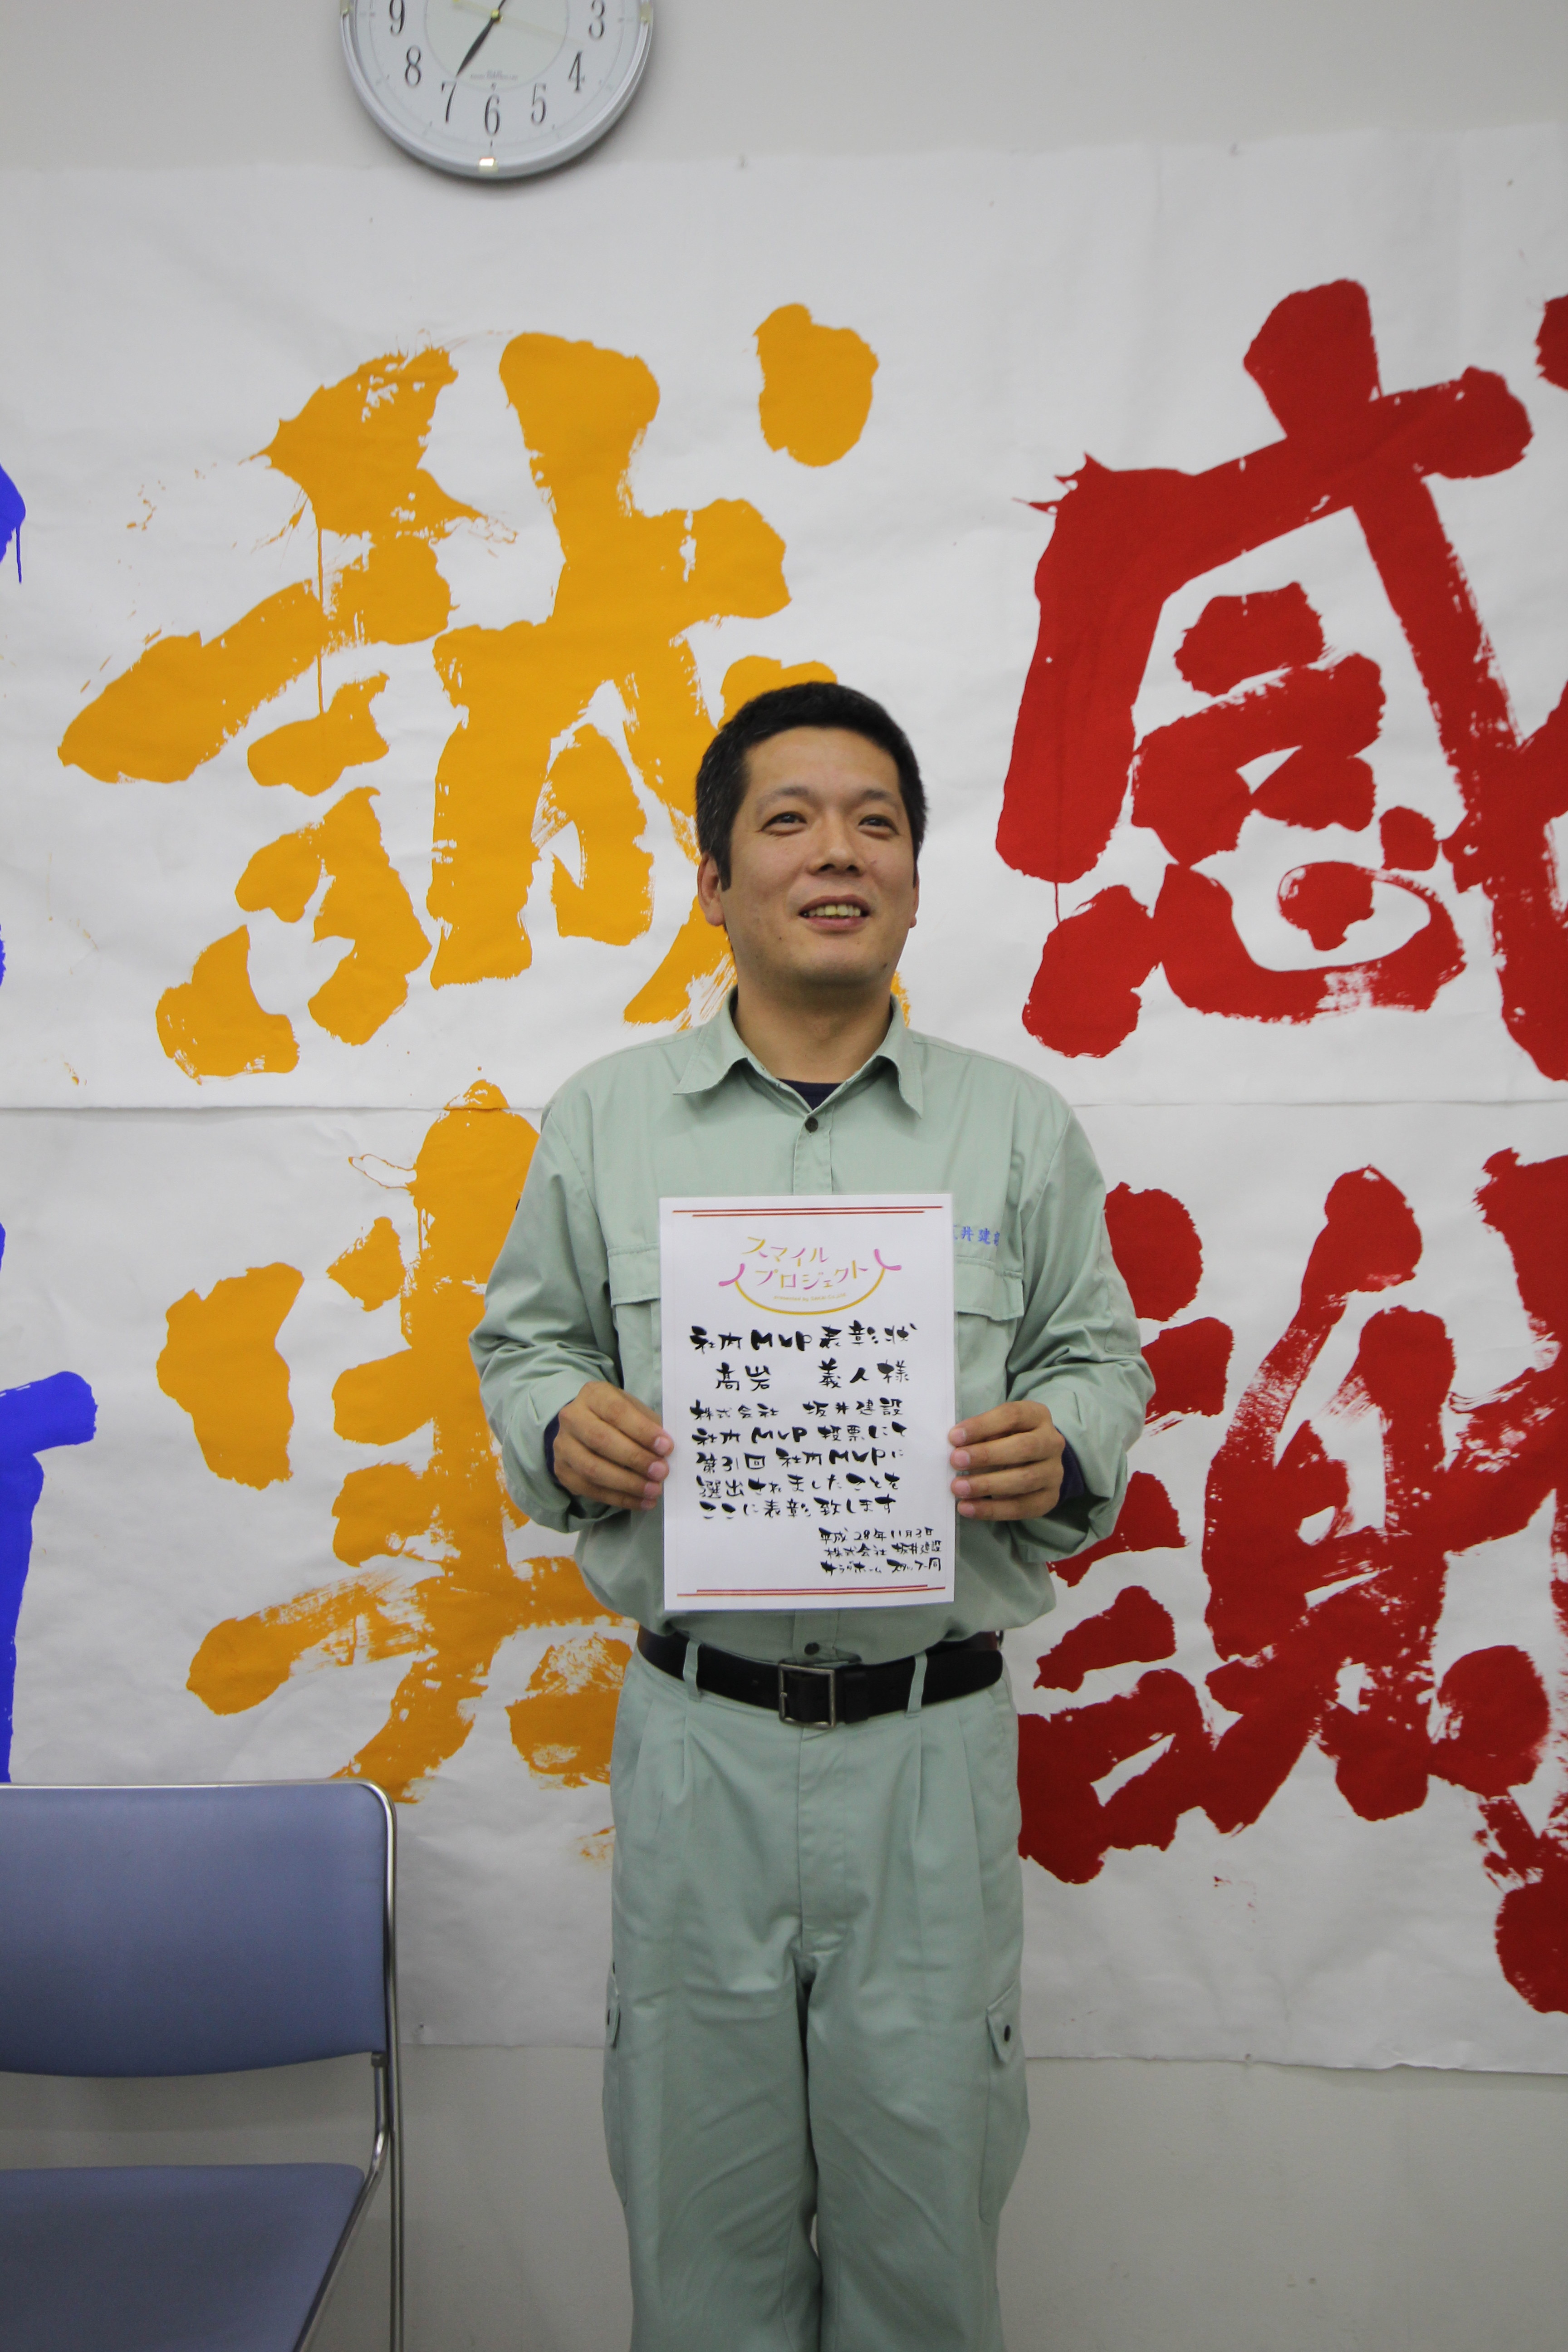 9
3
8
4
7
6
5
感謝
誠実
井建
スマイル
プロジェクト
社内MVP表彰状
高岩 義人様
株式会社 坂井建設
社内MVP投票にて
第31回 社内MVPに
選出されましたことを
ここに表彰致します
平成28年11月3日
株式会社 坂井建設
サラダホーム スタッフ一同